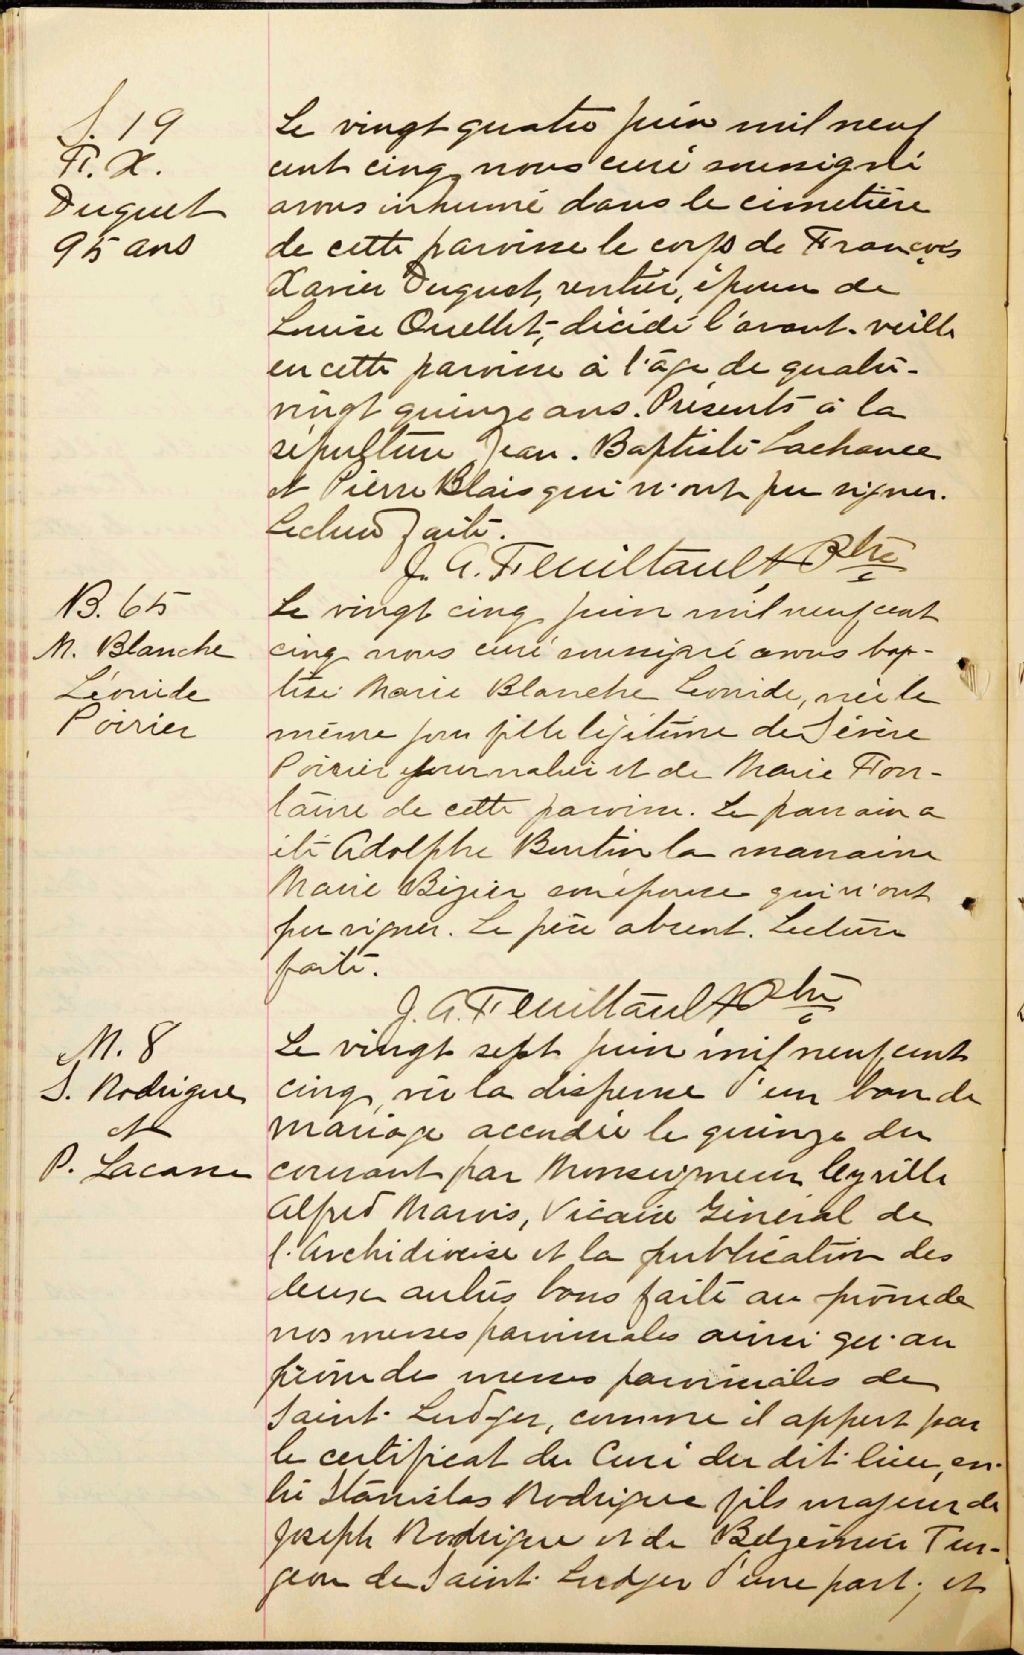 S. 19
F. X.
Duguet
95 ans
Le vingt quatre juin mil neuf
cent cinq nous curé soussigné
avons inhumé dans le cimetière
de cette paroisse le corps de François
Xavier Duguet, rentier, époux de
Louise Ouellet, décédé l'avant-veille
en cette paroisse à l'âge de quatre-
vingt quinze ans. Présents à la
sépulture Jean-Baptiste Lachance
et Pierre Blais qui n'ont pu signer.
Lecture faite.
J. A. Feuiltault Ptre
B. 65
M. Blanche
Léonide
Poirier
Le vingt cinq juin mil neuf cent
cinq nous curé soussigné avons bap-
tisé Marie Blanche Leonide, née le
même jour fille légitime de Sévère
Poirier journalier et de Marie Fon-
taine de cette paroisse. Le parrain a
été Adolphe la marraine
Marie son épouse qui n'ont
pu signer. Le père absent. Lecture
faite.
J. A. Feuiltault Ptre
M. 8
S. Rodrigue
et
P. Lacasse
Le vingt sept juin mil neuf cent
cinq, vu la dispense d'un ban de
mariage accordée le quinze du
courant par Monseigneur Cyrille
Alfred Marois, Vicaire Général de
l'Archidiocèse et la publication des
deux autres bans faite au prône de
nos messes paroissiales ainsi qu'au
prône des messes paroissiales de
Saint-Ludger, comme il appert par
le certificat du Curé du dit lieu, en-
tre Stanislas Rodrigue fils majeur de
Joseph Rodrigue et de Belzémire Tur-
geon de Saint-Ludger d'une part; et